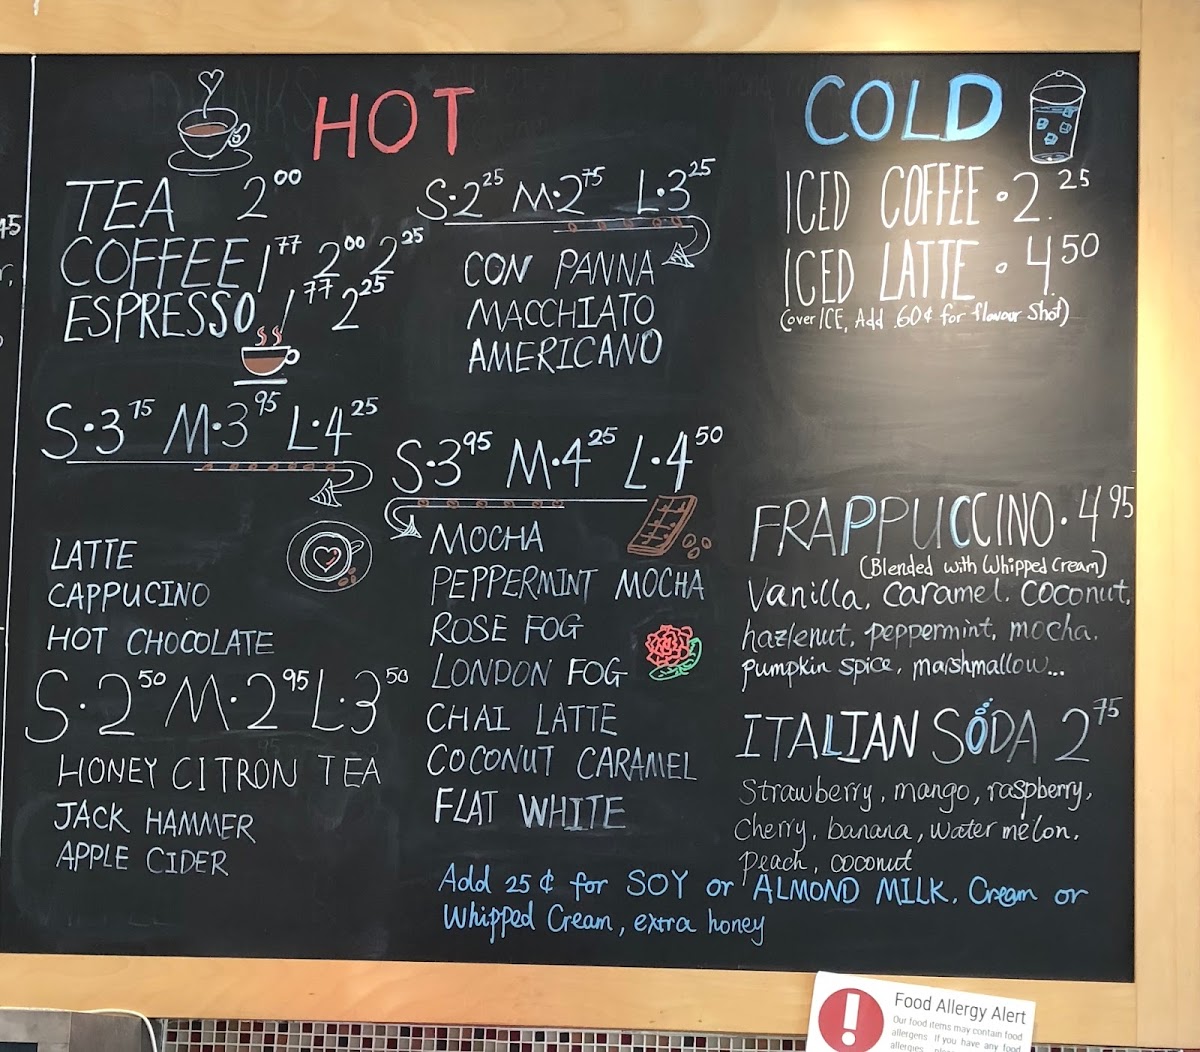 HOT
TEA 2.00
COFFEE 1.77 2.00 2.25
ESPRESSO 1.77 2.25
S·3.75 M·3.95 L·4.25
LATTE
CAPPUCINO
HOT CHOCOLATE
S·2.50 M·2.95 L·3.50
HONEY CITRON TEA
JACK HAMMER
APPLE CIDER
S·2.25 M·2.75 L·3.25
CON PANNA
MACCHIATO
AMERICANO
S·3.95 M·4.25 L·4.50
MOCHA
PEPPERMINT MOCHA
ROSE FOG
LONDON FOG
CHAI LATTE
COCONUT CARAMEL
FLAT WHITE
COLD
ICED COFFEE · 2.25
ICED LATTE · 4.50
(over ICE, Add .60¢ for flavour Shot)
FRAPPUCCINO · 4.95
(Blended with Whipped Cream)
Vanilla, Caramel. Coconut,
hazlenut, peppermint, mocha.
pumpkin spice, marshmallow...
ITALIAN SODA 2.75
Strawberry, mango, raspberry,
Cherry, banana, water melon.
peach, coconut
Add 25¢ for SOY or ALMOND MILK. Cream or
Whipped Cream, extra honey
Food Allergy Alert
Our food items may contain food
allergens. If you have any food
allergies